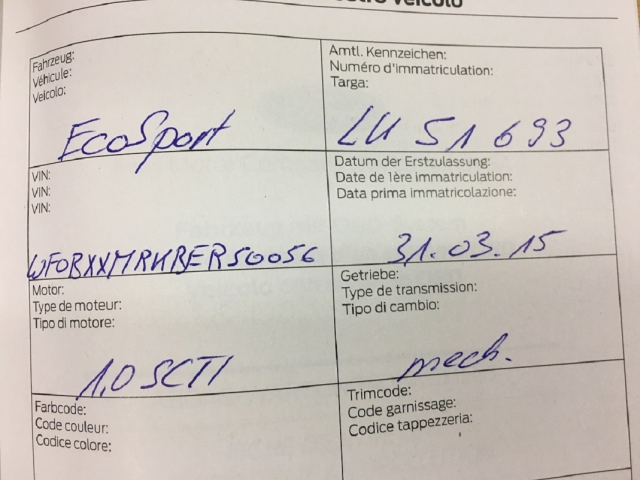 veicolo
Fahrzeug:
Véhicule:
Veicolo:
EcoSport
Amtl. Kennzeichen:
Numéro d'immatriculation:
Targa:
LU 51 693
VIN:
VIN:
VIN:
WF0BXXMRKBER50056
Datum der Erstzulassung:
Date de 1ère immatriculation:
Data prima immatricolazione:
31.03.15
Motor:
Type de moteur:
Tipo di motore:
1,0 SCTI
Getriebe:
Type de transmission:
Tipo di cambio:
mech.
Farbcode:
Code couleur:
Codice colore:
Trimcode:
Code garnissage:
Codice tappezzeria: